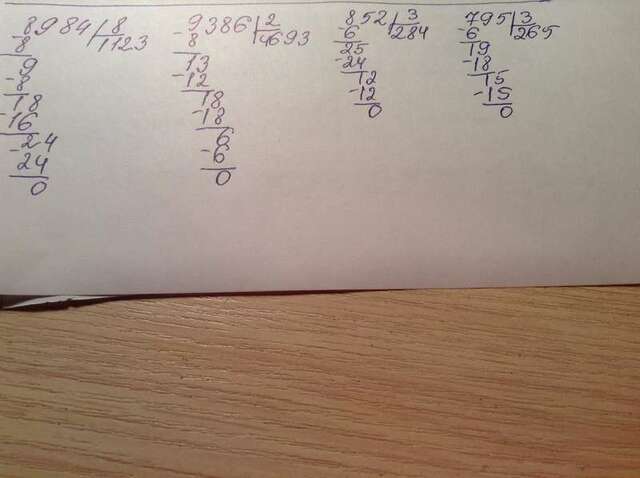 8984 8
-8 1123
9
-8
18
-16
-24
24
0
-9386 2
8 4693
13
-12
18
-18
6
-6
0
852 3
-6 284
25
-24
12
-12
0
795 3
-6 265
19
-18
15
-15
0